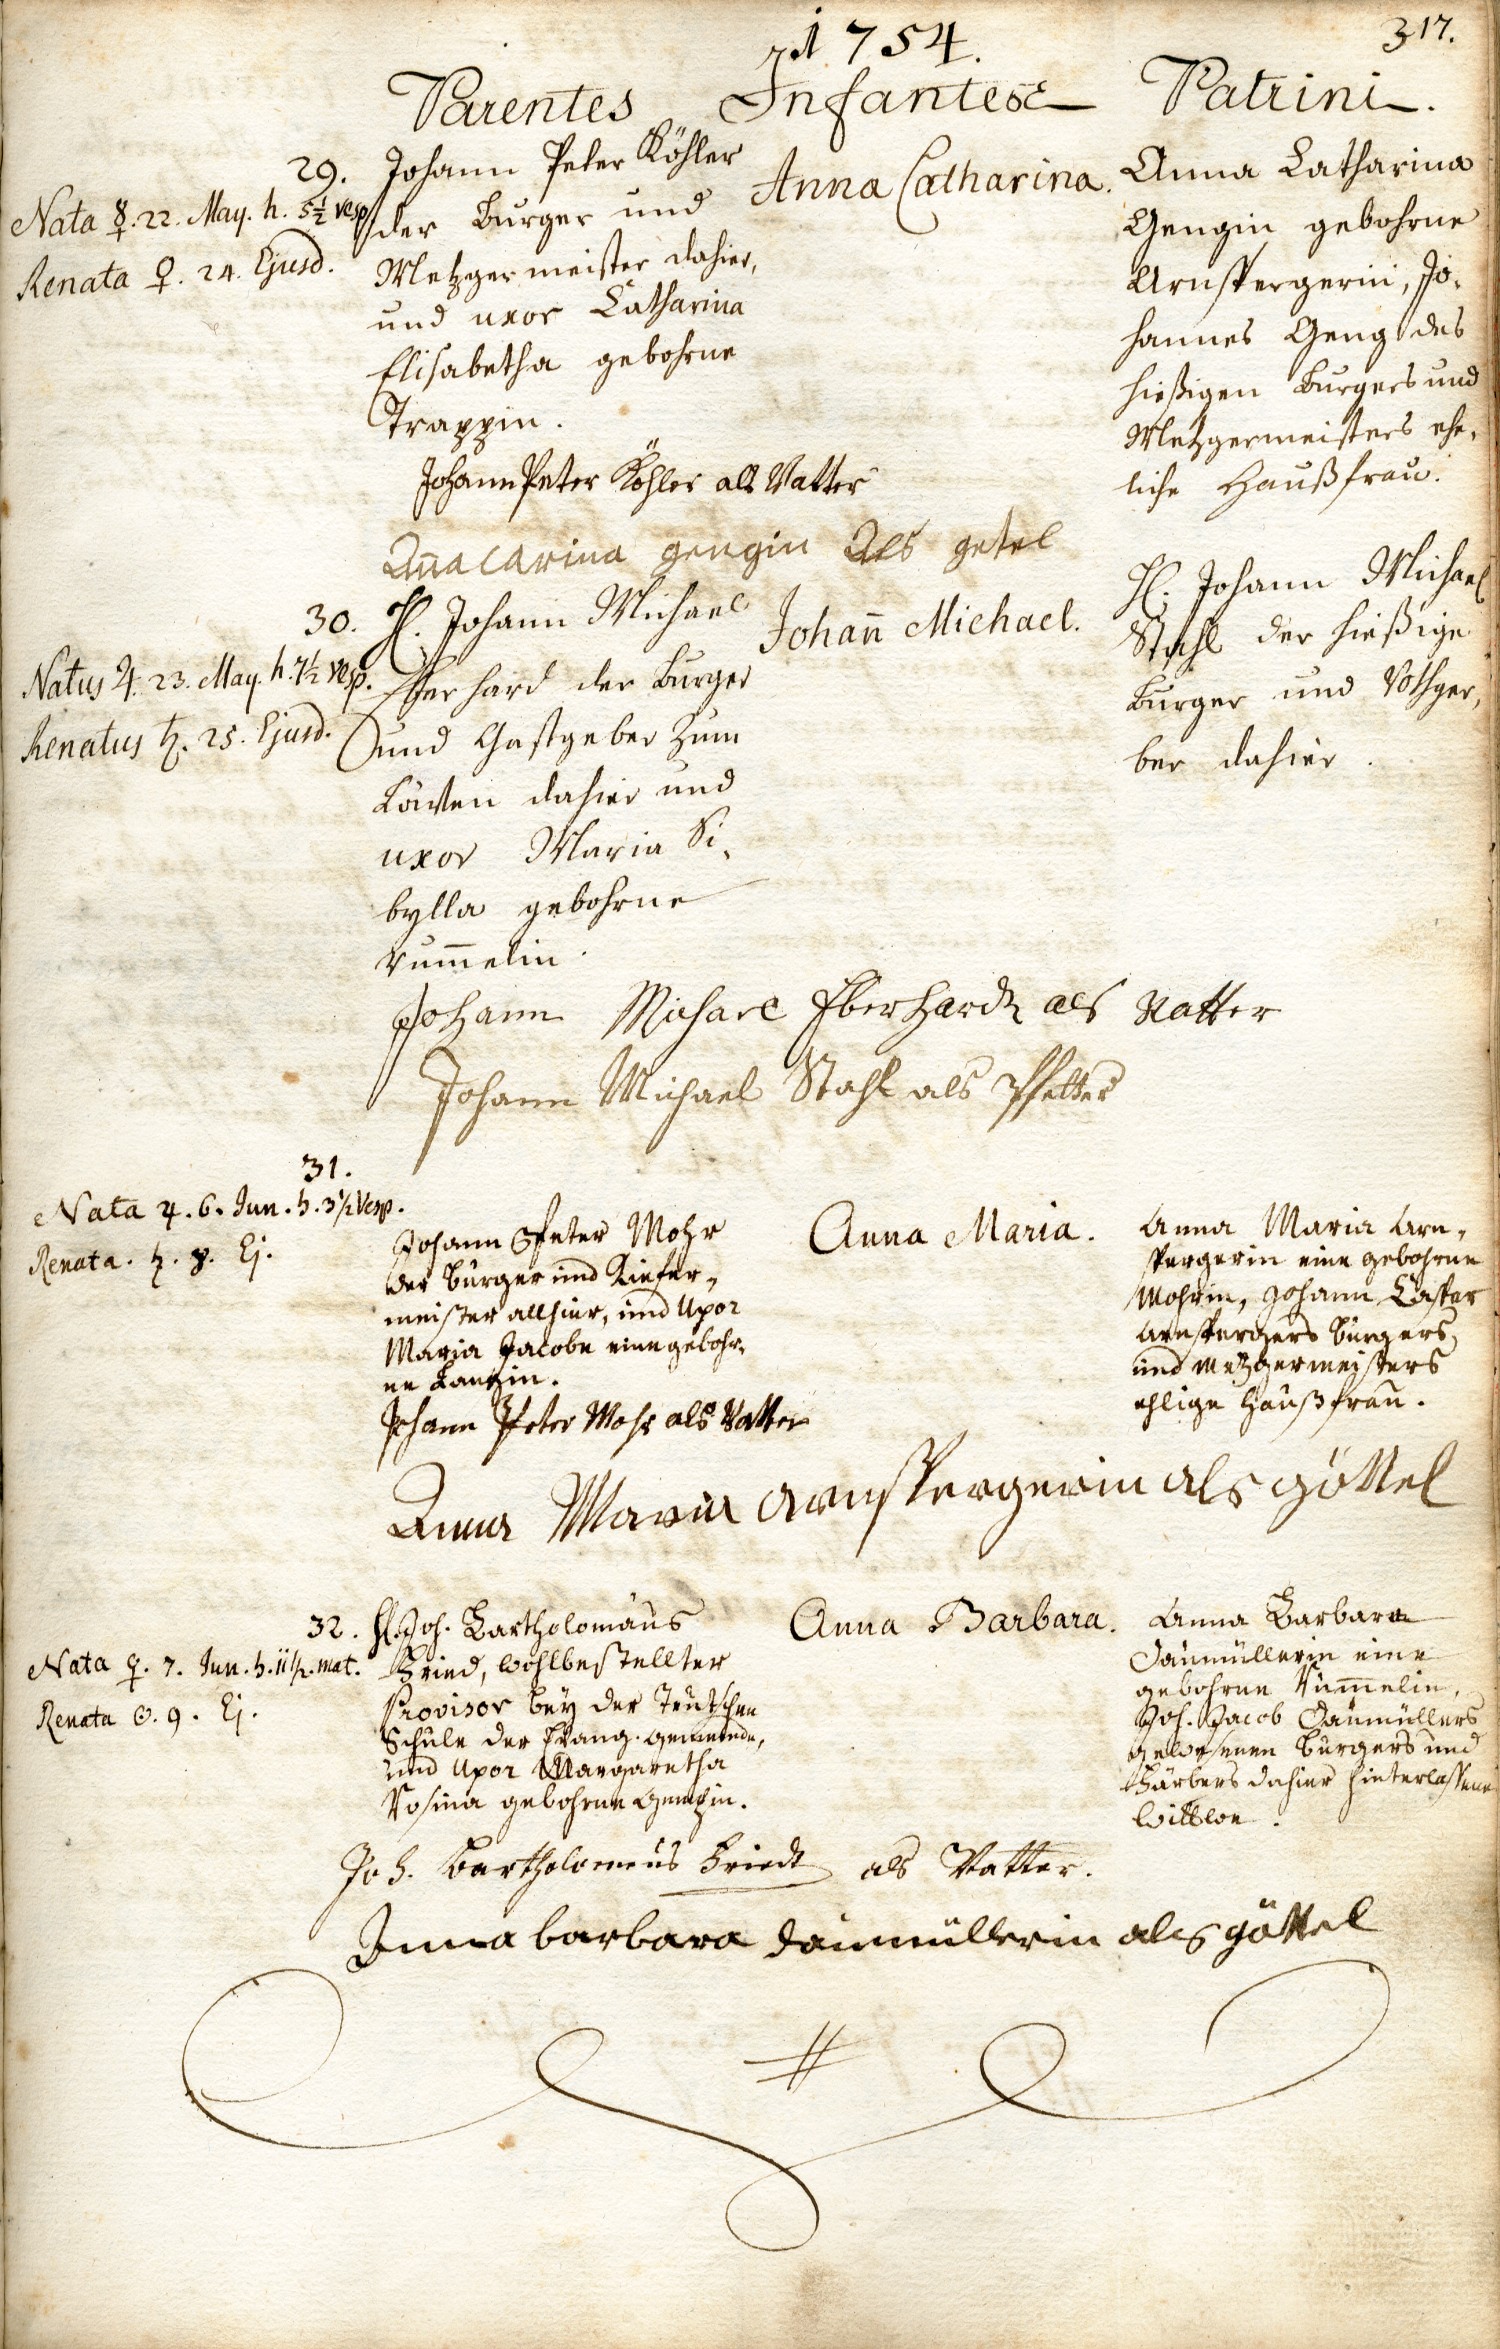 1754.
317.
Parentes
Infantes
Patrini.
29.
Nata ☿. 22. May. h. 5½ Vesp.
Renata ♀. 24. Ejusd.
Johann Peter Köhler
der Burger und
Metzgermeister dahier,
und uxor Catharina
Elisabetha gebohrne
Trappin.
Anna Catharina.
Anna Catharina
Gengin gebohrne
Arnspergerin, Jo-
hannes Geng des
hießigen Burgers und
Metzgermeisters ehe-
liche Haußfrau.
Johann Peter Köhler als Vatter
Anna Carina gengin Als getel
30.
Natus ♃. 23. May. h. 7½ Vesp.
Renatus ♄. 25. Ejusd.
H. Johann Michael
Eberhard der Burger
und Gastgeber zum
Löwen dahier und
uxor Maria Si-
bylla gebohrne
Rum̄elin.
Johan̄ Michael.
H. Johann Michael
Stahl der hießige
Burger und Rothger-
ber dahier.
Johann Michael Eberhardt als Vatter
Johann Michael Stahl als Pfetter
31.
Nata ♃. 6. Jun. h. 3 1/2 Vesp.
Renata. ♄. 8. Ej.
Johann Peter Mohr
der Bürger und Kiefer-
meister allhier, und Uxor
Maria Jacobe eine gebohr-
ne Lantzin.
Anna Maria.
Anna Maria Arn-
spergerin eine gebohrne
Mohrin, Johann Casper
Arnspergers Bürgers
und Metzgermeisters
ehlige Haußfrau.
Johann Peter Mohr als Vatter
Anna Maria arnspergerin als göttel
32.
Nata ♀. 7. Jun. h. 11 1/2. mat.
Renata ☉. 9. Ej.
H. Joh. Bartholomäus
Fried, wohlbestellter
Provisor bey der Teutschen
Schule der Evang. Gemeinde,
und Uxor Margaretha
Rosina gebohrne Gentzin.
Anna Barbara.
Anna Barbara
Daumüllerin eine
gebohrne Rüm̄elin,
Joh. Jacob Daumüllers
gewesenen Bürgers und
Färbers dahier hinterlassene
Wittwe.
Joh. Bartholomeus Friedt als Vatter.
Anna barbara daumüllerin als göttel